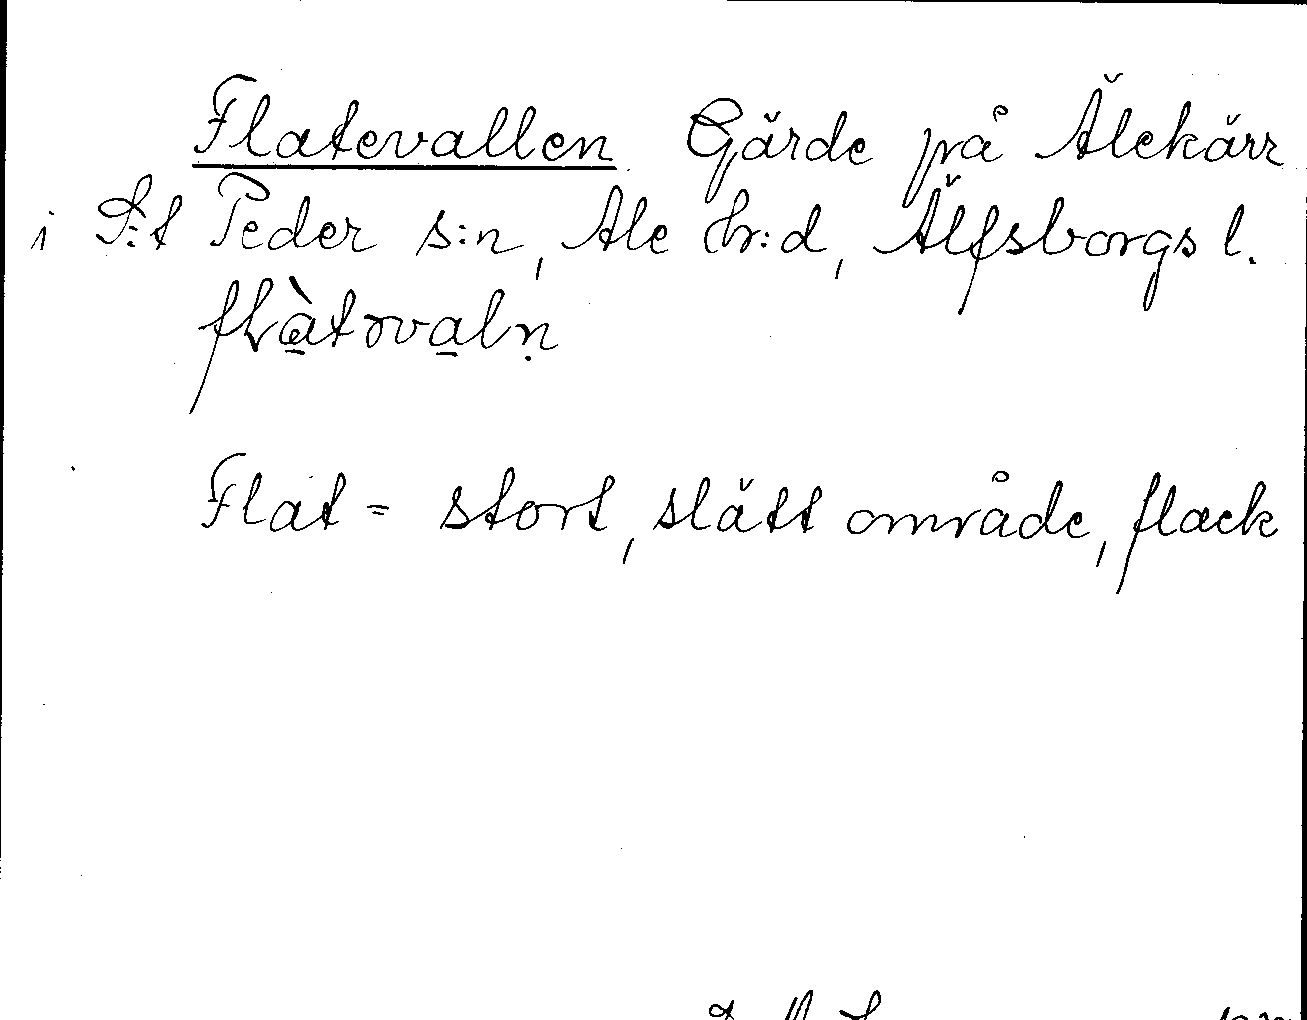 Flatevallen Gärde på Älekärr
i S:t Peder s:n, Ale hr:d, Älfsborgs l.
Flat = stort, slätt område, flack